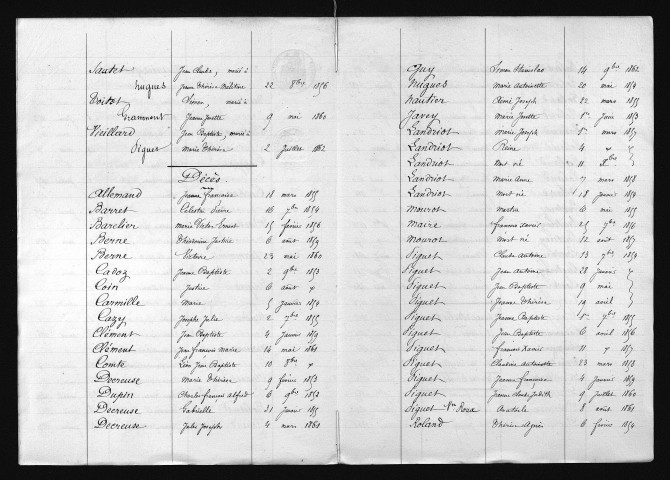 Sautet Jean Claude, marié à
Hugues Jeanne Thérèse Delétine 22 8bre 1856
Voitot Simon, marié à
Grammont Jeanne Josette 9 mai 1860
Vieillard Jean Baptiste, marié à
Piguet Marie Thérèse 2 juillet 1862
Décès.
Allemand Jeanne françoise 18 mars 1855
Barret Celestin Pierre 16 7bre 1854
Barelier Marie Victor Ernest 15 février 1856
Berne Thérésine Justine 6 août 1859
Berne Victoire 23 mai 1860
Cadoz Jeanne Baptiste 2 9bre 1853
Coin Justine 6 août x
Carmille Marie 5 janvier 1854
Cazy Josephe Julie 2 7bre 1855
Clément Jean Baptiste 4 janvier 1859
Clément Jean françois Marie 14 mai 1861
Comte Léon Jean Baptiste 10 8bre x
Decreuse Marie Thérèse 9 février 1853
Dupin Charles françois alfred 6 9bre 1852
Decreuse Gabrielle 31 janvier
Decreuse Jules Joseph 4 mars 1861
Guy Simon Stanislas 14 9bre 1862
Hugues Marie antoinette 20 mai 1854
Hautier aimé Joseph 22 mars 1855
Javey Marie Josette 5 1853
Landriot Marie Joseph 5 mars 1857
Landriot Reine 4 x
Landriot Mort né 11 8bre
Landriot Marie Anne 7 mars 1858
Landriot Mort né 18 janvier 1854
Mourot Martin 6 mai 1855
Maire francois xavier 25 7bre 1856
Mourot Mort né 12 août 1857
Piguet Claude antoine 13 7bre 1854
Piguet Jean antoine 28 janvier
Piguet Jean Baptiste 9 mai
Piguet Jeanne Thérèse 19 avril
Piguet Jeanne Baptiste 5 7bre 1855
Piguet Jean Baptiste 6 avril 1856
Piguet françois Xavier 11 x 1857
Piguet Claudine antoinette 23 mars 1858
Piguet Jeanne francoise 4 janvier 1859
Piguet Jeanne Claude Judith 9 juillet 1860
Piguet Anatole 8 août 1861
Roland Thérèse Agnès 6 février 1854